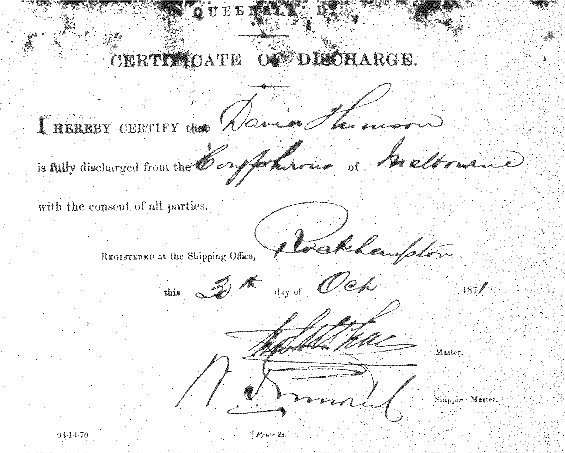 QUEENSLAND.
CERTIFICATE OF DISCHARGE.
I HEREBY CERTIFY that David Thomson
is fully discharged from the of Melbourne
with the consent of all parties.
REGISTERED at the Shipping Office, Rockhampton
this 3th day of Oct 1871
Master.
Shipping Master.